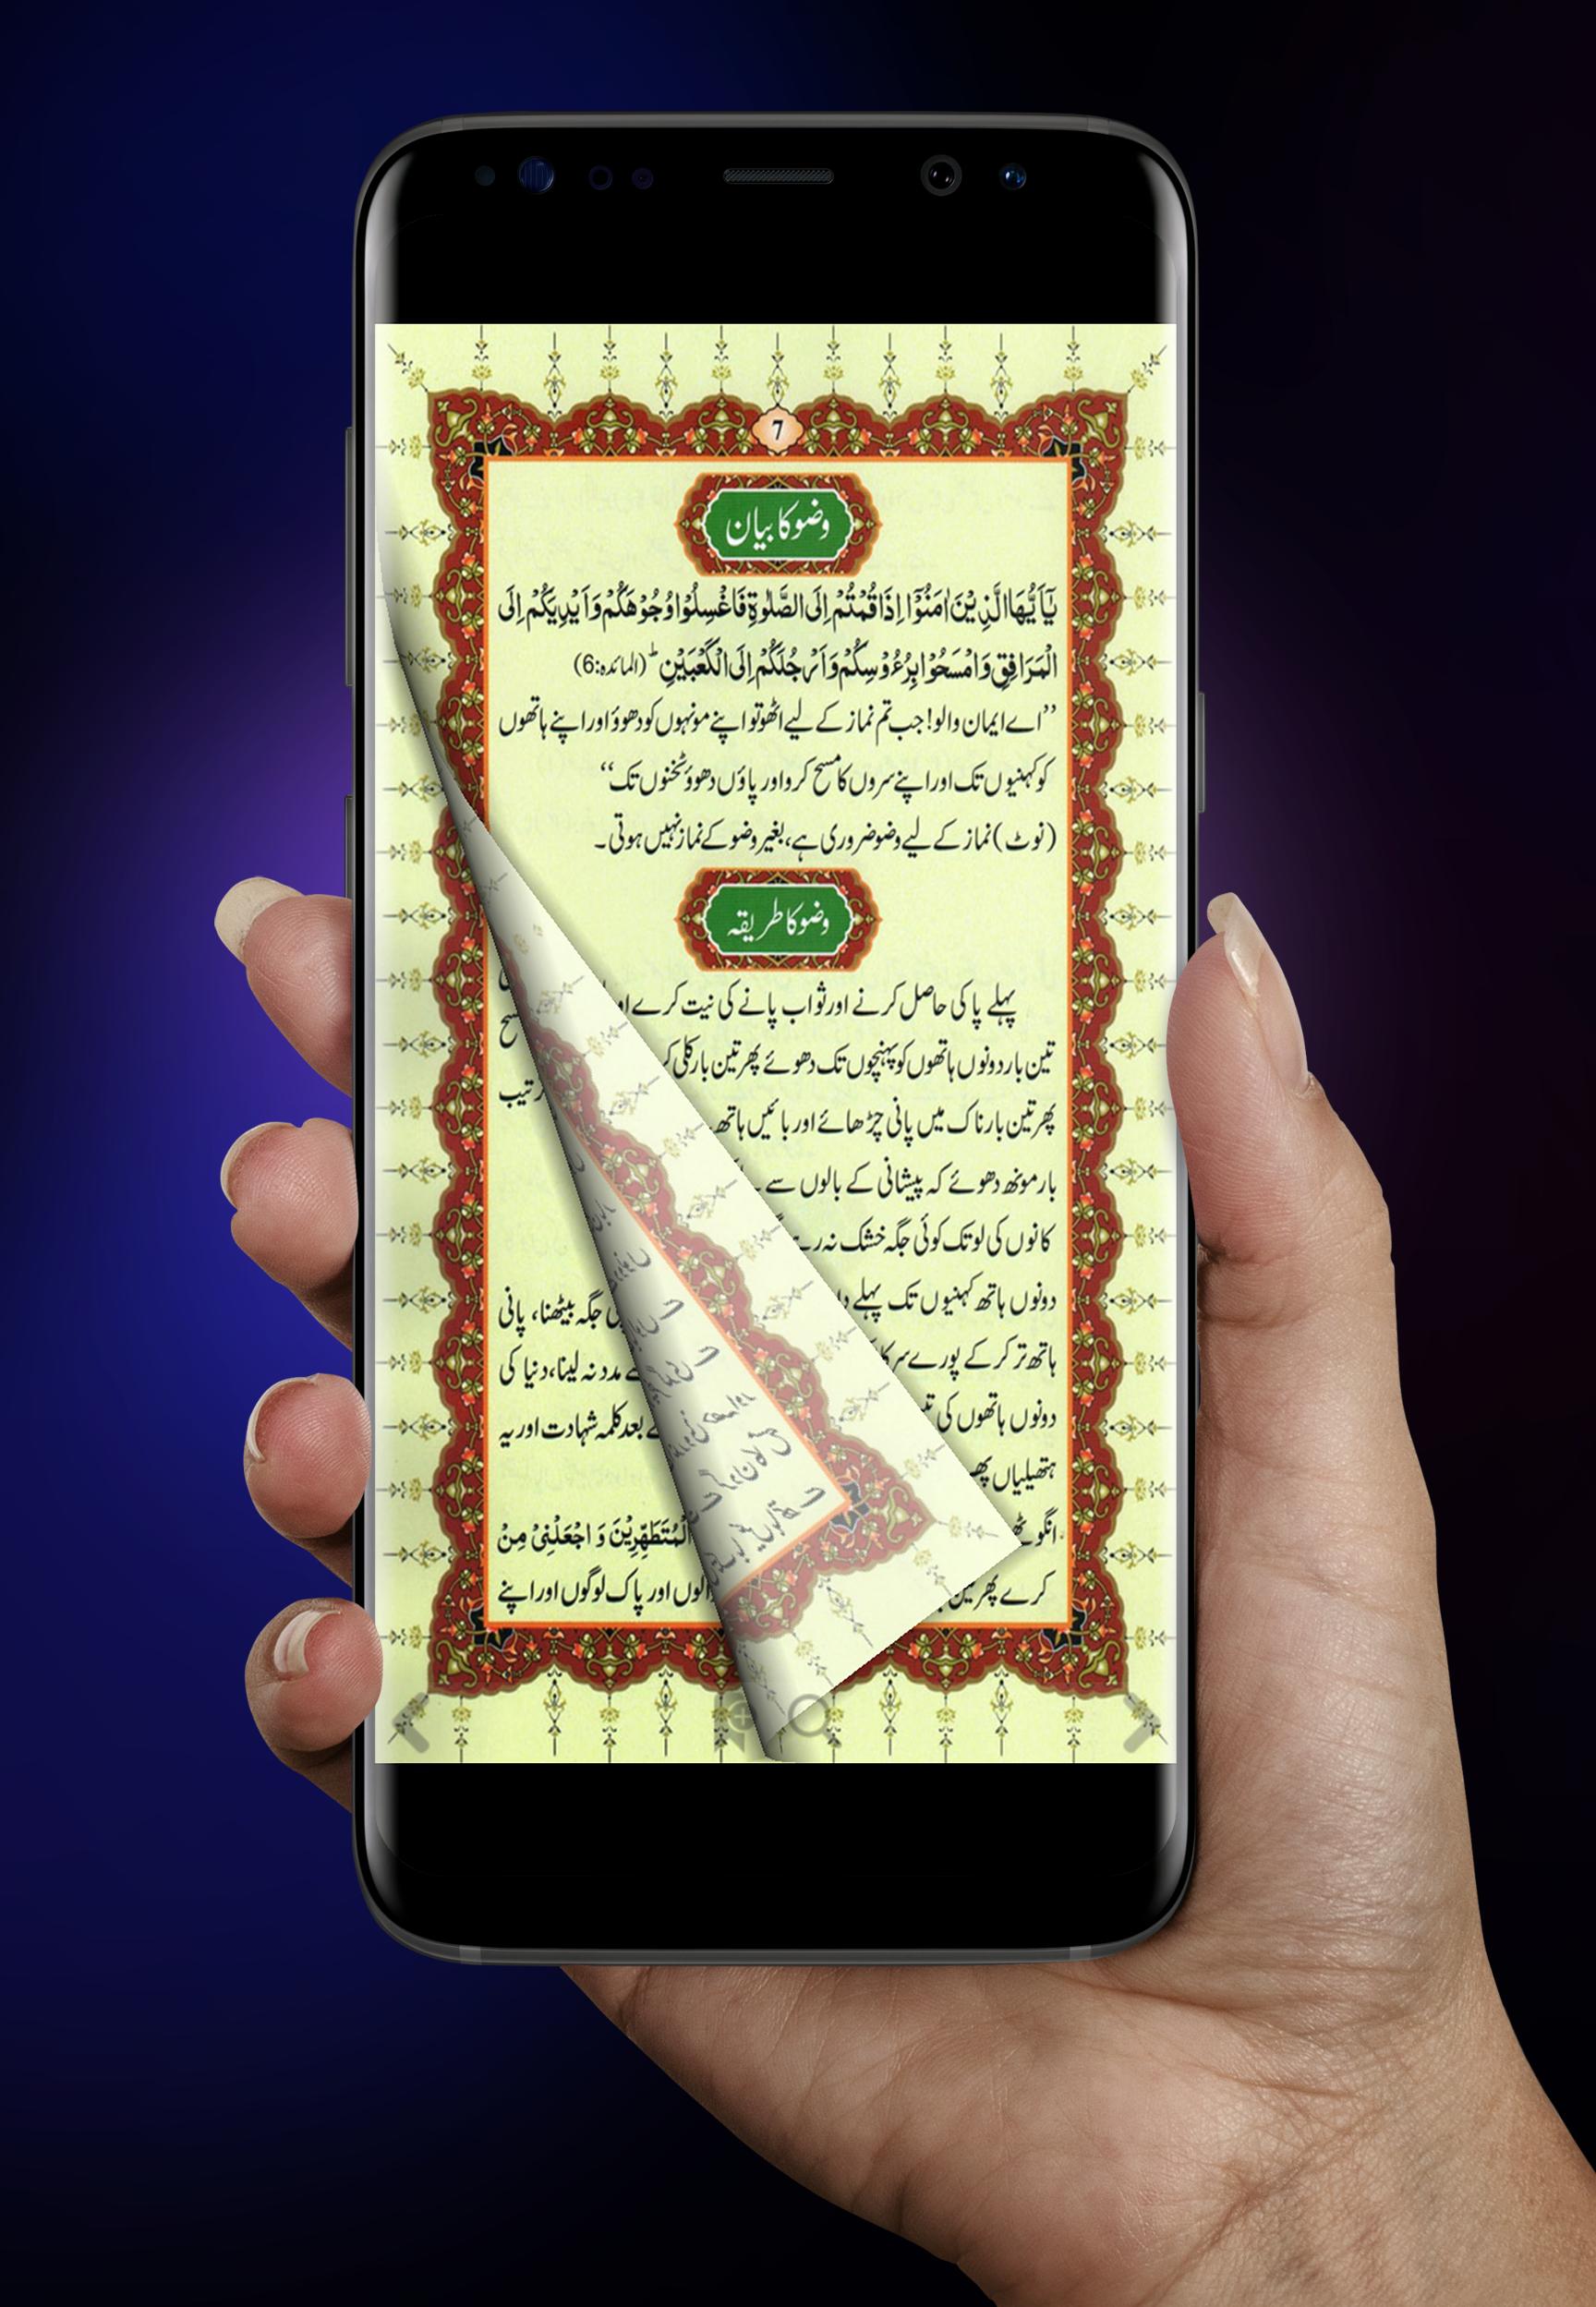 7
وضو کا بیان
یٰۤاَیُّهَا الَّذِیْنَ اٰمَنُوْۤا اِذَا قُمْتُمْ اِلَی الصَّلٰوةِ فَاغْسِلُوْا وُجُوْهَكُمْ وَ اَیْدِیَكُمْ اِلَی
الْمَرَافِقِ وَ امْسَحُوْا بِرُءُوْسِكُمْ وَ اَرْجُلَكُمْ اِلَی الْكَعْبَیْنِ ؕ (المائدہ:6)
”اے ایمان والو! جب تم نماز کے لیے اٹھو تو اپنے مونہوں کو دھوؤ اور اپنے ہاتھوں
کو کہنیوں تک اور اپنے سروں کا مسح کرو اور پاؤں دھوؤ ٹخنوں تک“
(نوٹ) نماز کے لیے وضو ضروری ہے، بغیر وضو کے نماز نہیں ہوتی۔
وضو کا طریقہ
پہلے پاکی حاصل کرنے اور ثواب پانے کی نیت کرے
تین بار دونوں ہاتھوں کو پہنچوں تک دھوئے پھر تین بار کلی
پھر تین بار ناک میں پانی چڑھائے اور بائیں ہاتھ
بار مونھ دھوئے کہ پیشانی کے بالوں سے
کانوں کی لو تک کوئی جگہ خشک نہ
دونوں ہاتھ کہنیوں تک پہلے
جگہ بیٹھنا، پانی
ہاتھ تر کرکے پورے سر
مدد نہ لینا، دنیا کی
دونوں ہاتھوں کی
بعد کلمہ شہادت اور یہ
ہتھیلیاں
الْمُتَطَهِّرِیْنَ وَ اجْعَلْنِیْ مِنْ
کرے پھر
اور پاک لوگوں اور اپنے